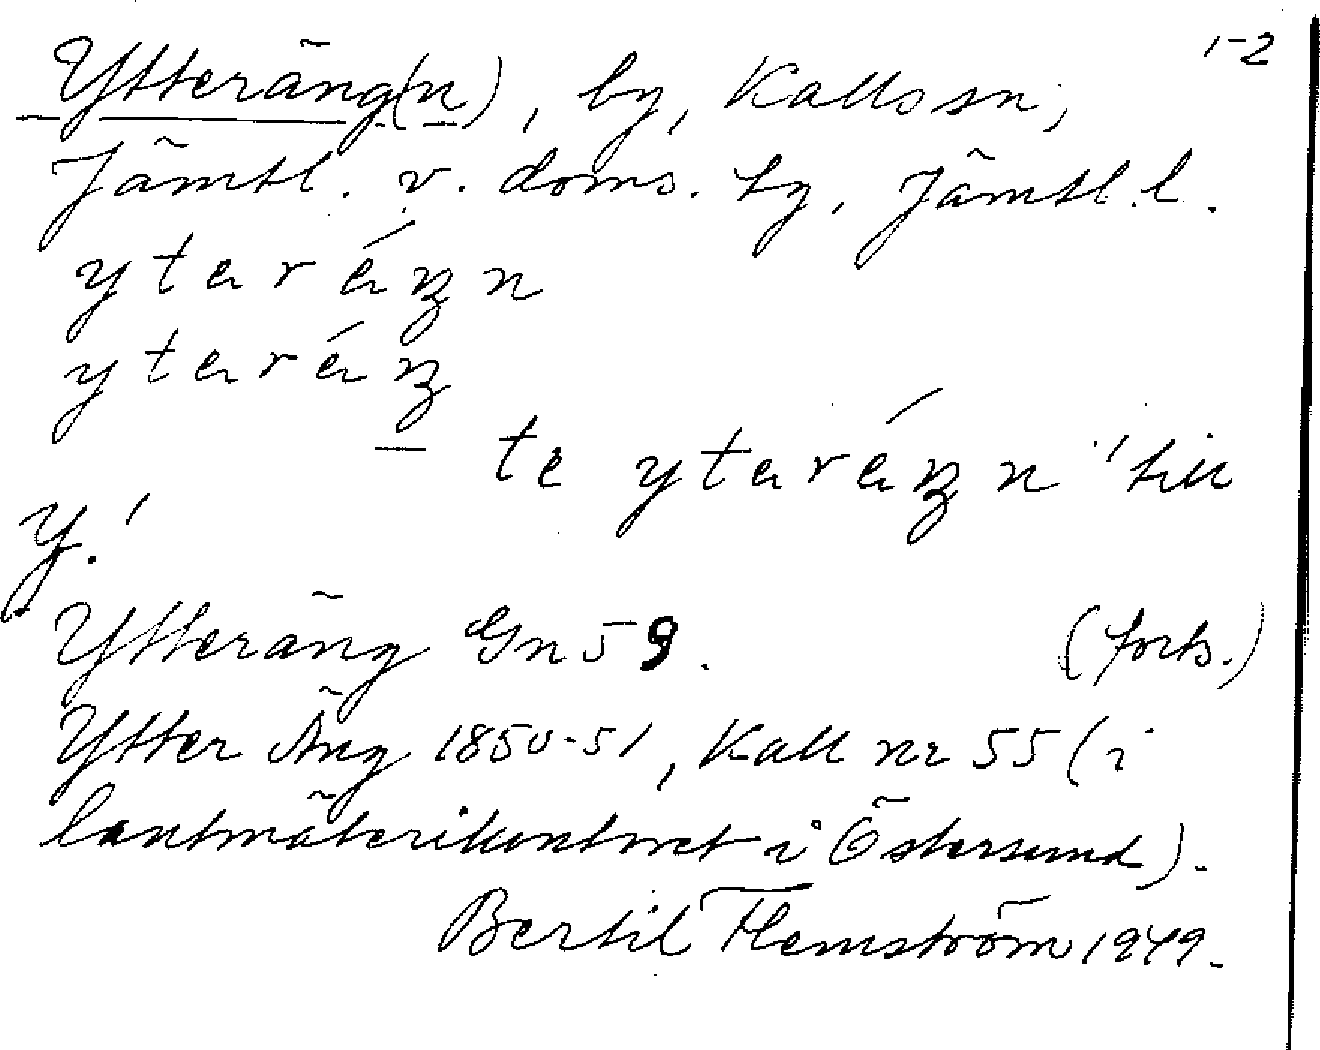 1-2
Ytteräng(n), by, Kalls sn,
Jämtl. v. doms. tg, Jämtl. l.
yteréŋn
yteréŋ
– te yteréŋn 'till
Y.'
Ytteräng Gn 59. (forts.)
Ytter Äng 1850-51, Kall nr 55 (i
lantmäterikontoret i Östersund).
Bertil Flemström 1949.